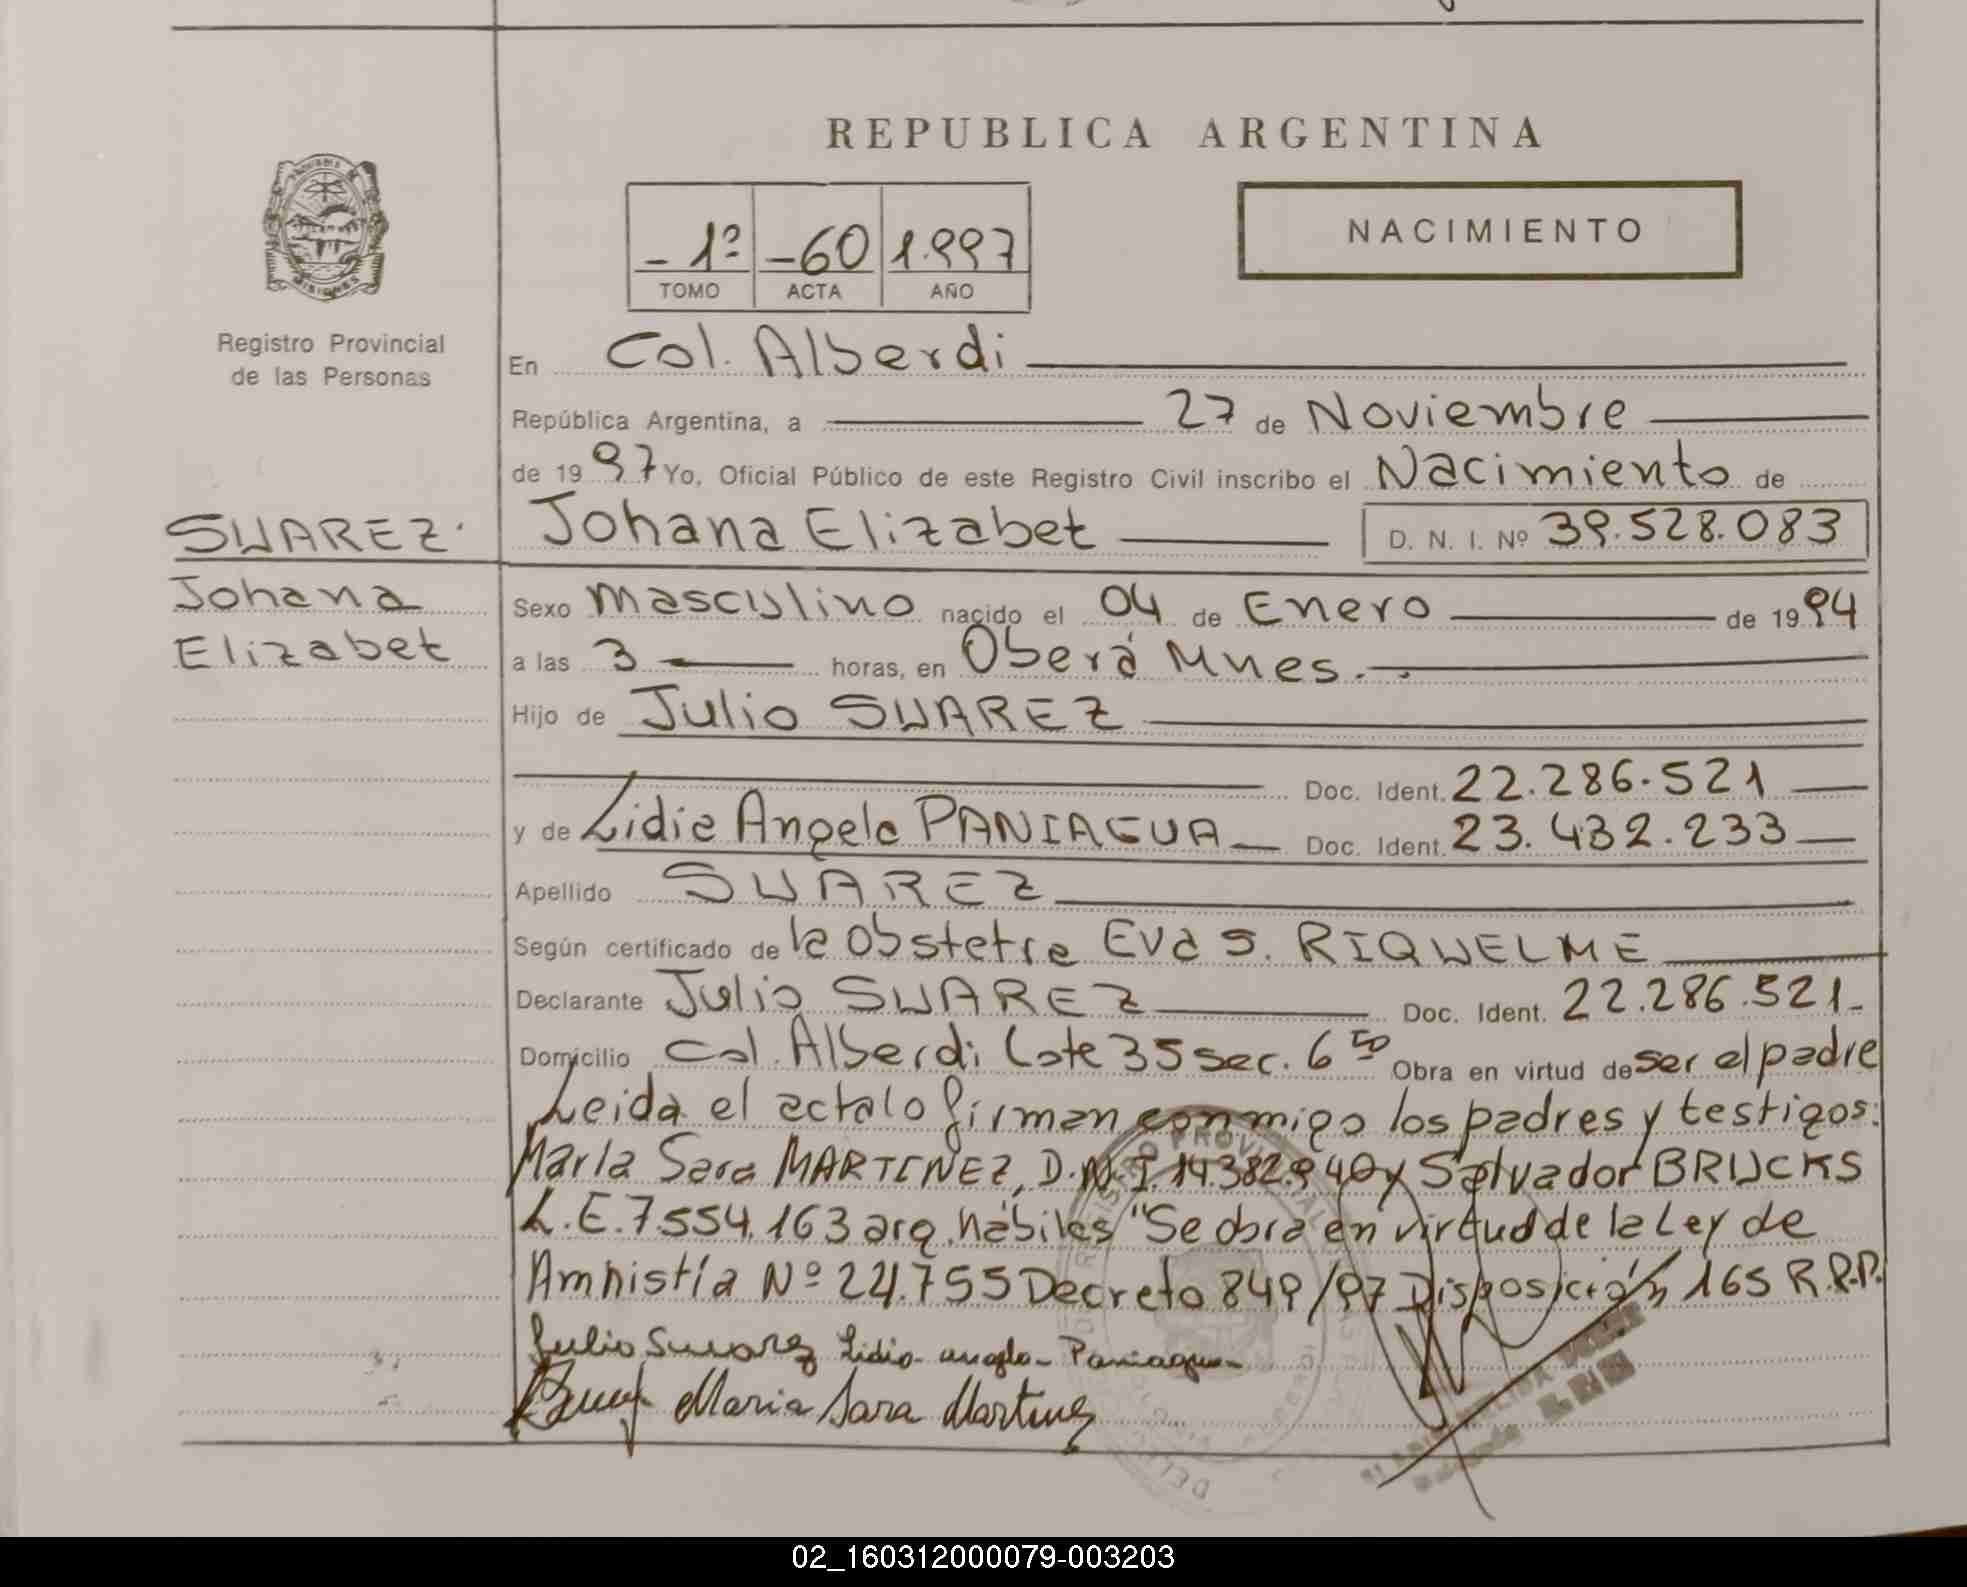 REPUBLICA ARGENTINA
- 1º -60 1.997
TOMO ACTA AÑO
NACIMIENTO
Registro Provincial
de las Personas
En Col. Alberdi
República Argentina, a 27 de Noviembre
de 1997 Yo, Oficial Público de este Registro Civil inscribo el Nacimiento de
SUAREZ.
Johana
Elizabet
Johana Elizabet D. N. I. Nº 39.528.083
Sexo masculino nacido el 04 de Enero de 1994
a las 3 horas, en Oberá Mnes.
Hijo de Julio SUAREZ
Doc. Ident. 22.286.521
y de Lidia Angela PANIAGUA Doc. Ident. 23.432.233
Apellido SUAREZ
Según certificado de la Obstetra Eva S. RIQUELME
Declarante Julio SUAREZ Doc. Ident. 22.286.521-
Domicilio Col. Alberdi Lote 35 sec. 6 to Obra en virtud de ser el padre
Leida el acta lo firman conmigo los padres y testigos:
María Sara MARTINEZ, D.N.I. 14.382.940 y Salvador BRUCKS
L.E. 7.554.163 arg. hábiles "Se obra en virtud de la Ley de
Amnistía Nº 24.755 Decreto 849/97 Disposición 165 R.P.P.
Julio Suarez Lidia angela Paniagua
Maria Sara Martinez
REGISTRO PROVINCIAL
02_160312000079-003203